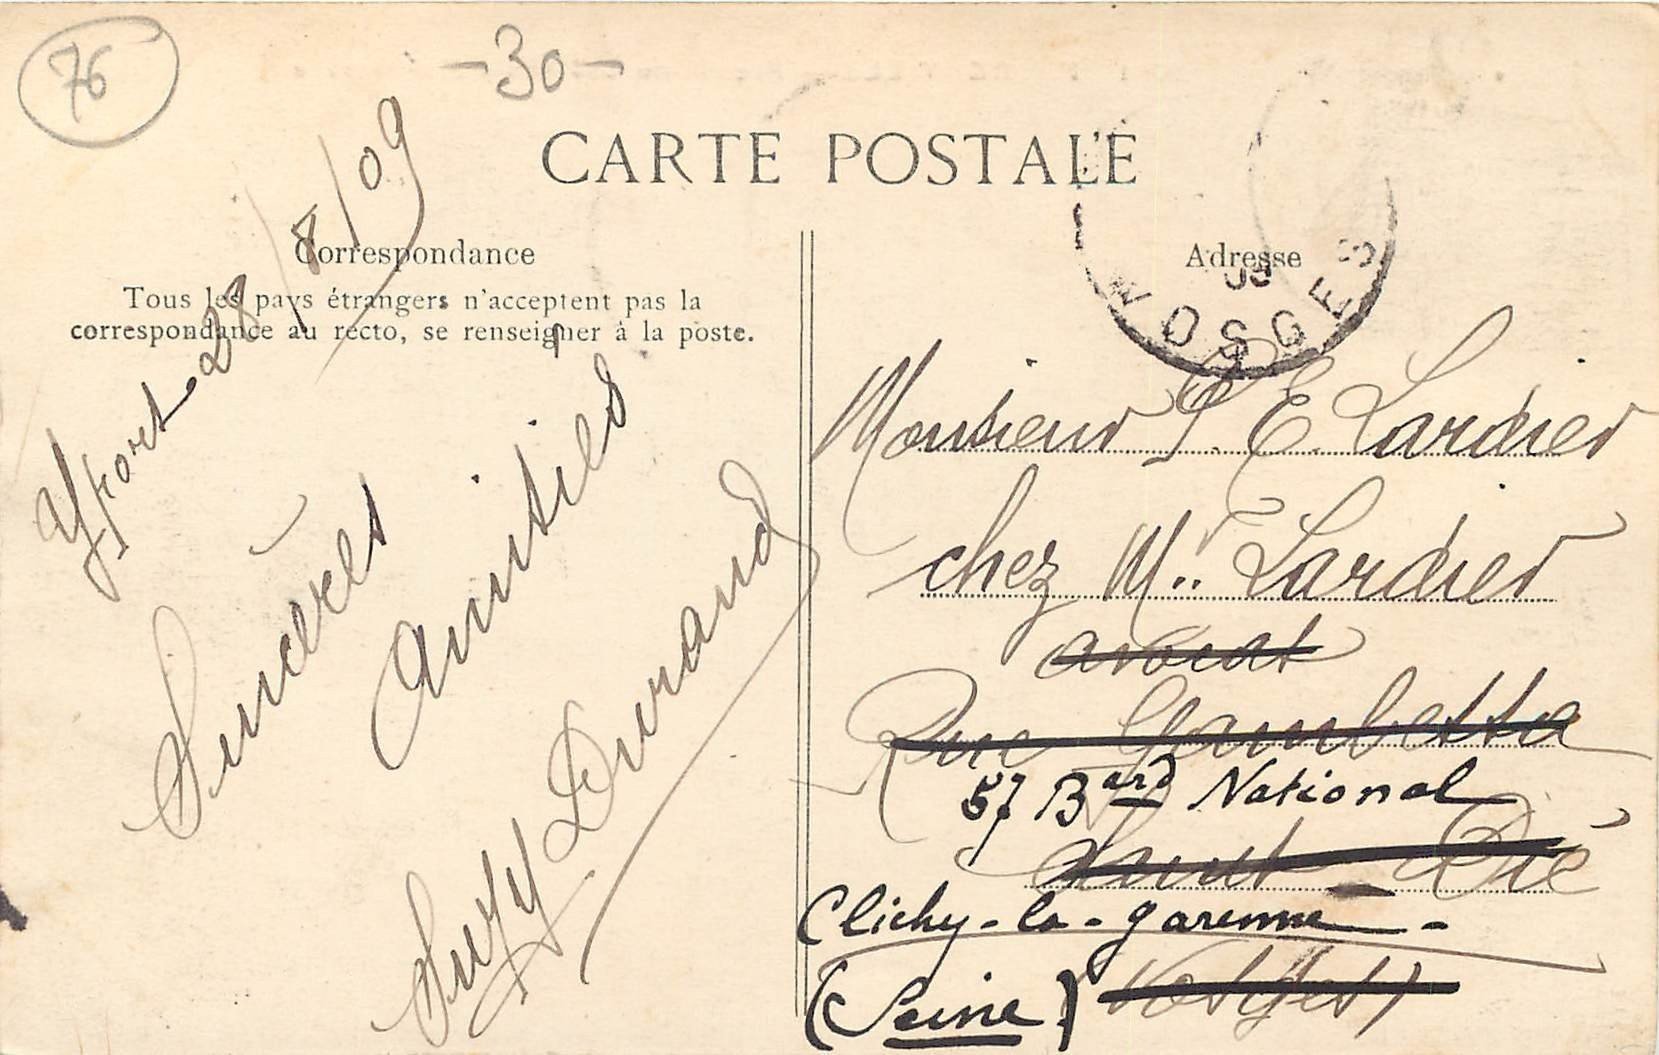 76
-30-
CARTE POSTALE
Correspondance
Tous les pays étrangers n'acceptent pas la
correspondance au recto, se renseigner à la poste.
28/8/09
Sincères
amitiés
Suzy Durand
Adresse
09
VOSGES
Monsieur P. E. Lardier
chez Mr. Lardier
avocat
Rue Gambetta
57 Bard National
Saint Dié
Clichy-la-garenne-
(Seine)
Vosges)